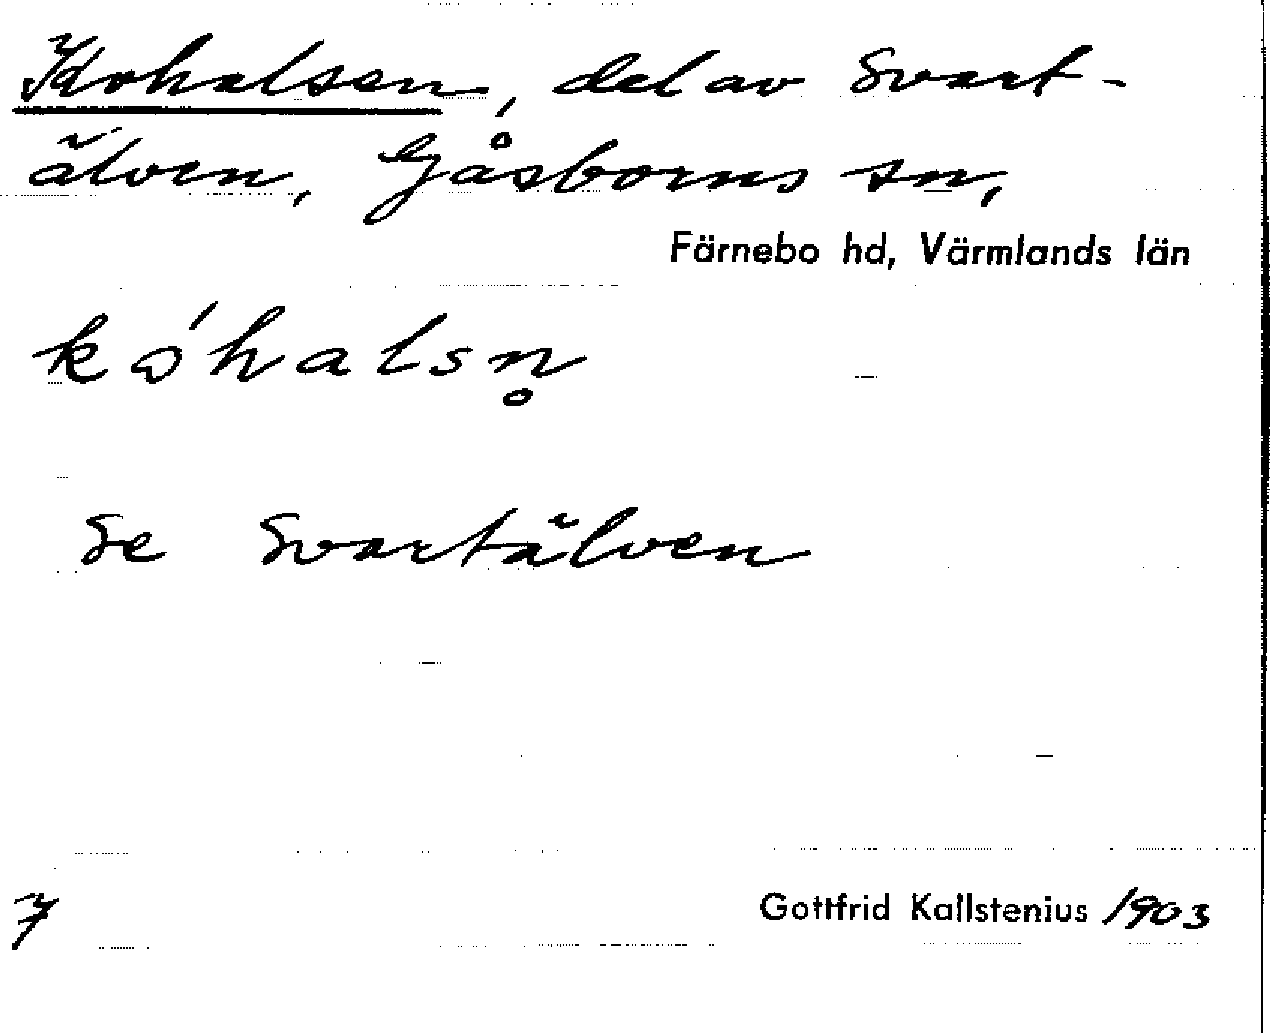 Kohalsen, del av Svart-
älven, Gåsborns sn,
Färnebo hd, Värmlands län
kɷ́halsn̥
Se Svartälven
7
Gottfrid Kallstenius 1903